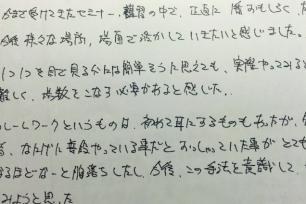 今まで受けてきたセミナー、講習の中で、正直に一番おもしろく、た
今後様々な場所、場面で活かしていきたいと感じました。
1つ1つを目で見る分には簡単そうに思えても、実際やってみると
難しく、場数をこなす必要があると感じた。
レームワークというものは、初めて耳にするものもあったが、
、なにげに普段やっている事だとおっしゃっていた事がとても
るほどなーと腑落ちしたし、今後、この手法を意識して、
みようと思った